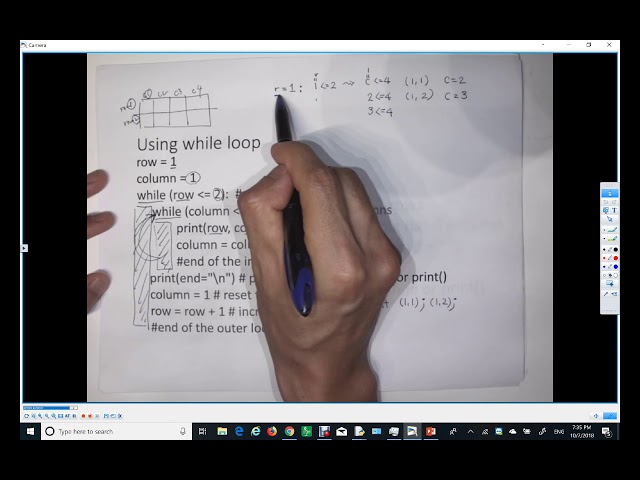 Camera
c2 c3 c4
row 1
row 2
r=1: 1<=2 → c<=4 (1,1) c=2
2<=4 (1,2) c=3
3<=4
Using while loop
row = 1
column = 1
while (row <= 2): #
while (column <
print(row, co
column = col
#end of the in
print(end="\n") # p or print()
column = 1 # reset t
row = row + 1 # incr (1,1); (1,2);
#end of the outer loo
Type here to search
7:35 PM
10/7/2018